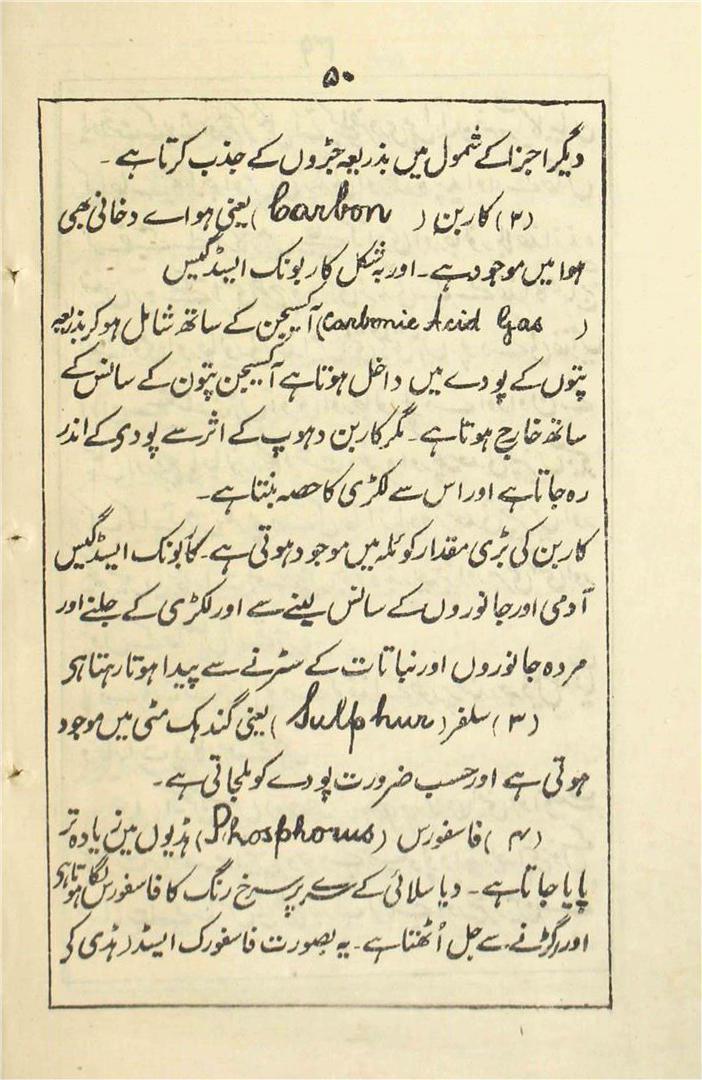 ۵۰
دیگر اجزا کے شمول میں بذریعہ جڑوں کے جذب کرتا ہے ۔
(۲) کاربن ( Carbon ) یعنی ہواے دخانی بھی
ہوا میں موجود ہے ۔ اور بہ شکل کاربونک ایسڈ گیس
( Carbonic Acid Gas) آکسیجن کے ساتھ شامل ہو کر بذریعہ
پتوں کے پودے میں داخل ہوتا ہے آکسیجن پتون کے سانس کے
ساتھ خارج ہوتا ہے ۔ مگر کاربن دہوپ کے اثر سے پودی کے اندر
رہ جاتا ہے اور اس سے لکڑی کا حصہ بنتا ہے ۔
کاربن کی بڑی مقدار کوئلہ میں موجود ہوتی ہے ۔ کاربونک ایسڈ گیس
آدمی اور جانوروں کے سانس لینے سے اور لکڑی کے جلنے اور
مردہ جانوروں اور نباتات کے سڑنے سے پیدا ہوتا رہتا ہی
(۳) سلفر ( Sulphur ) یعنی گندہک مٹی میں موجود
ہوتی ہے اور حسب ضرورت پودے کو ملجاتی ہے ۔
(۴) فاسفورس ( Phosphorus) ہڈیوں میں زیادہ تر
پایا جاتا ہے ۔ دیا سلائی کے سرے پر سرخ رنگ کا فاسفورس لگا ہوتا ہی
اور رگڑنے سے جل اُٹھتا ہے ۔ یہ بصورت فاسفورک ایسڈ ہڈی کی